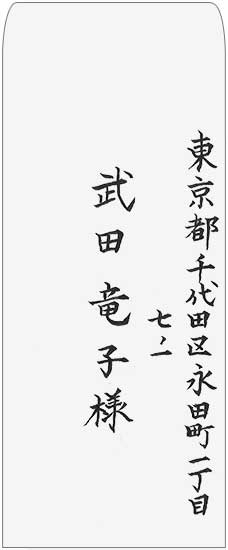 東京都千代田区永田町一丁目
七ノ一
武田竜子様